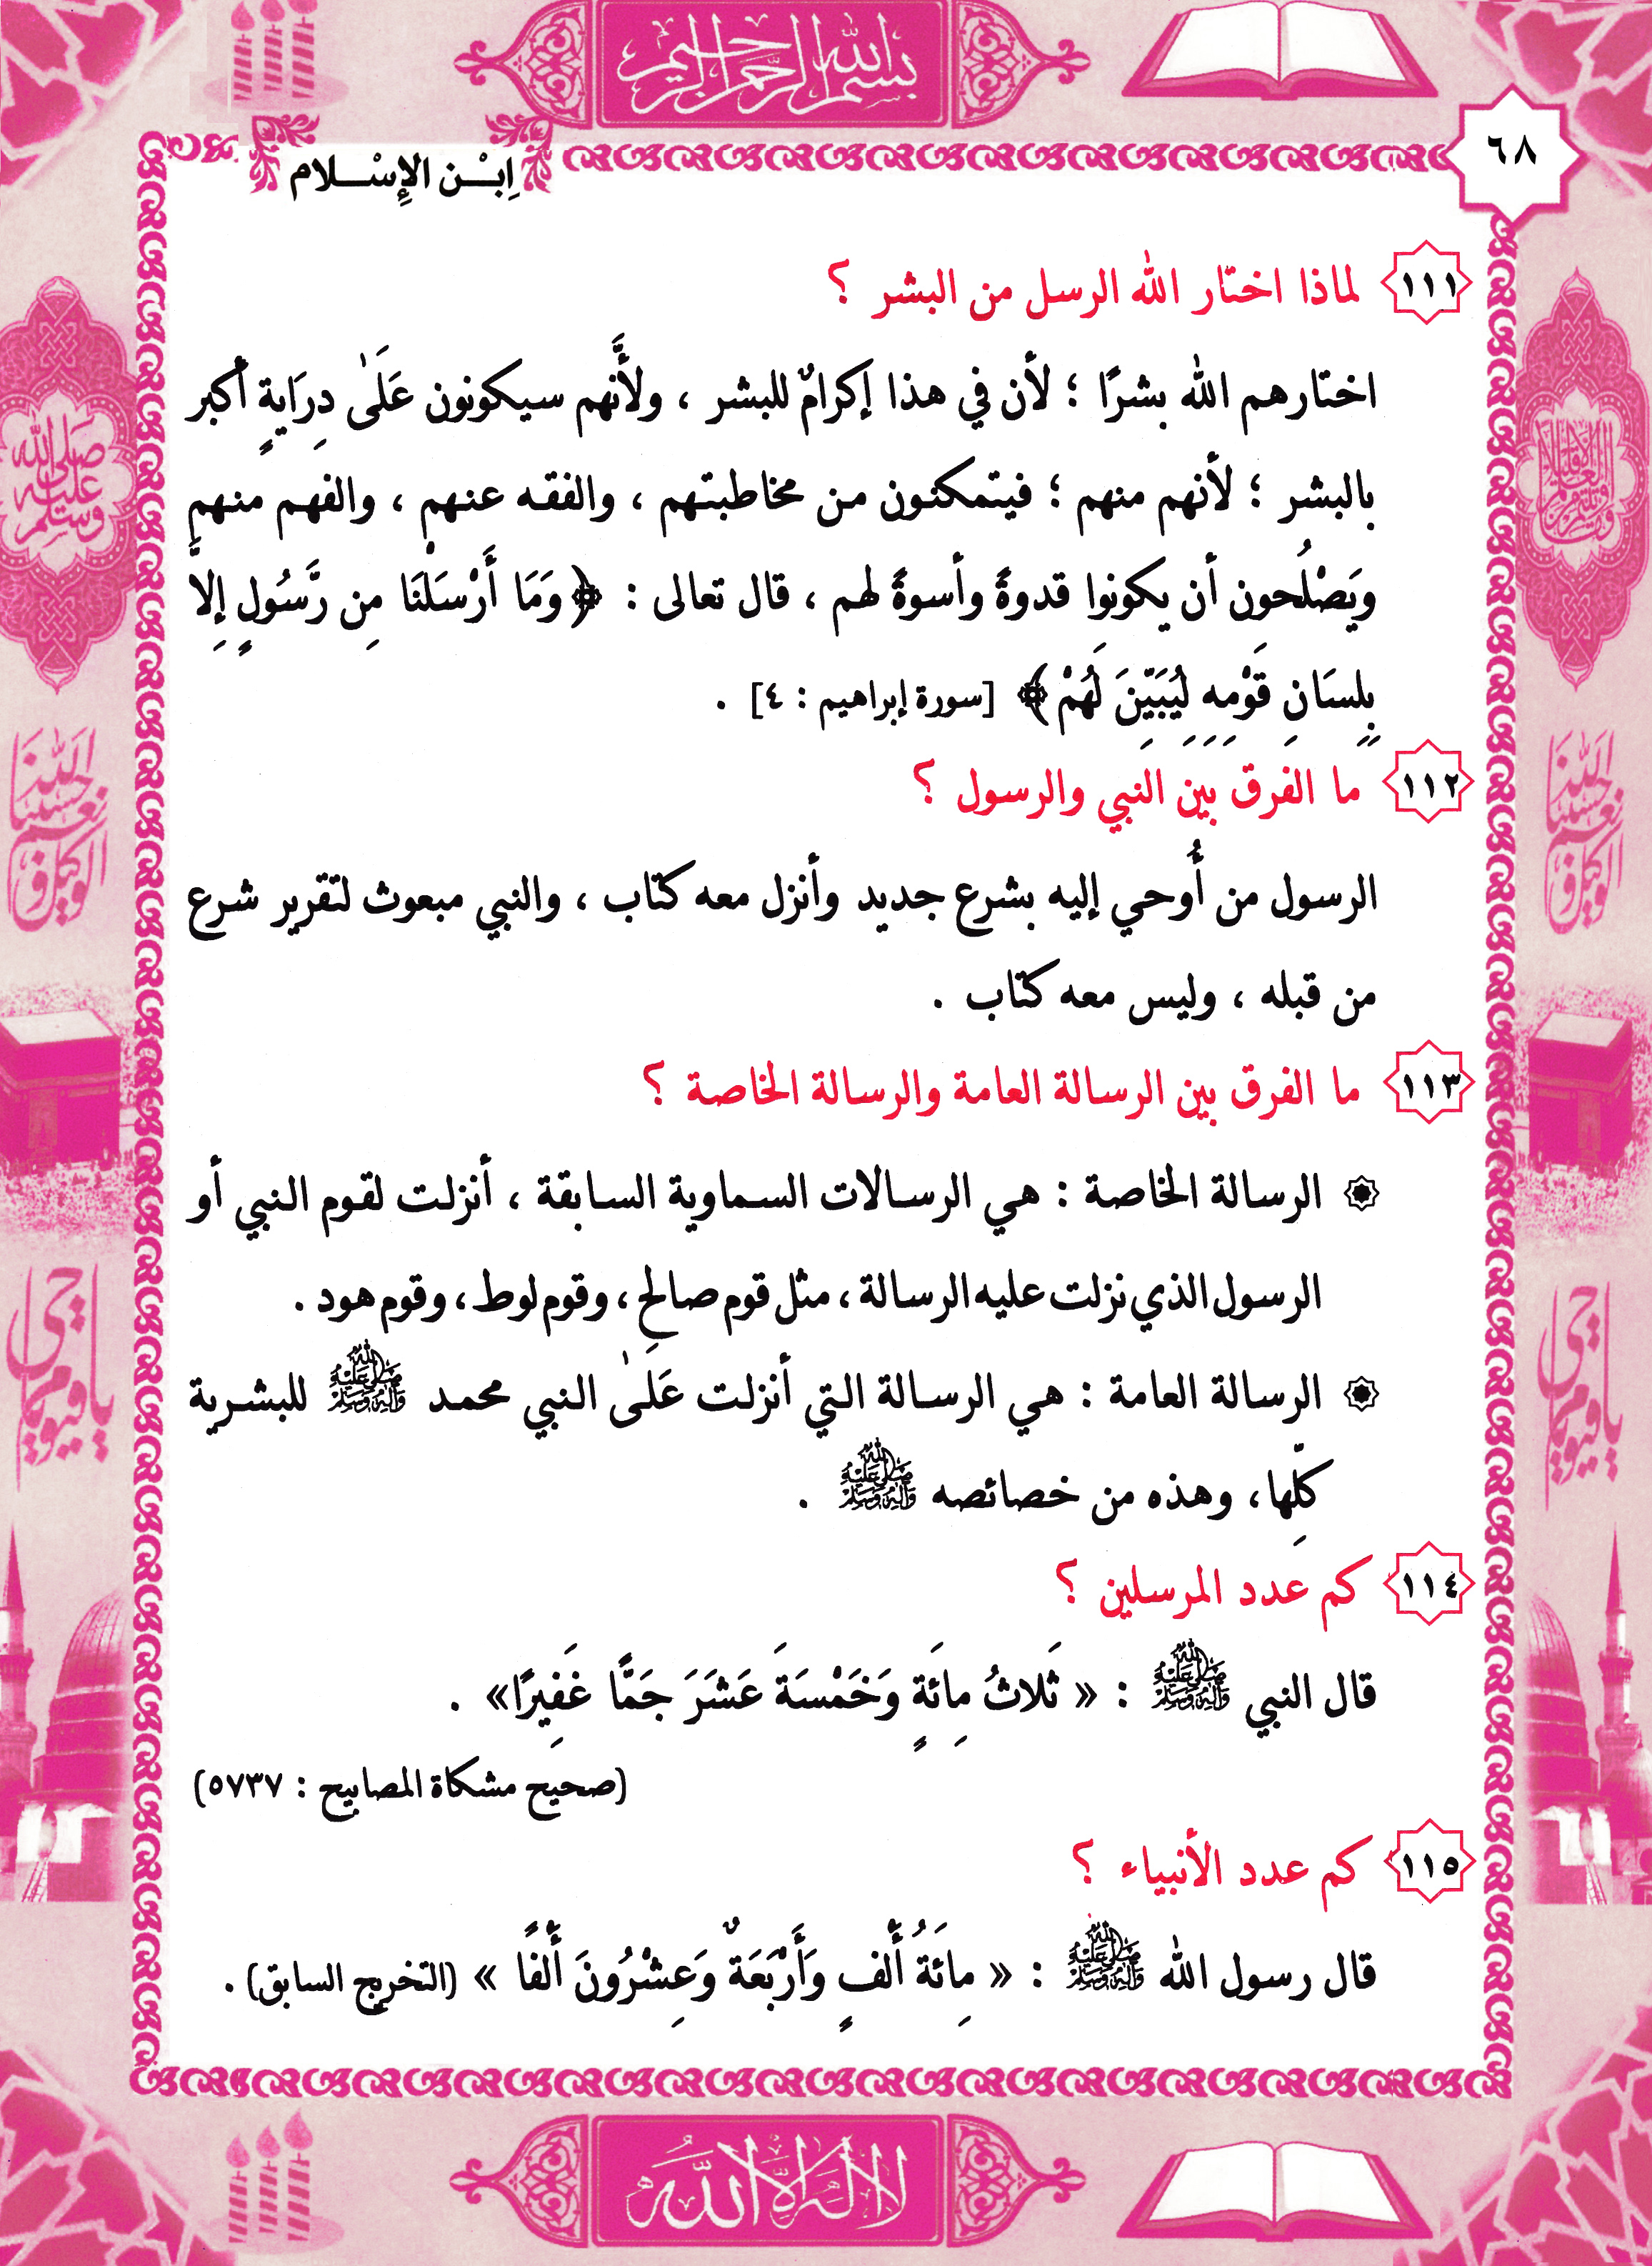 بسم الله الرحمن الرحيم
٦٨
اِبْـن الإِسْـلام
١١١ لماذا اختار الله الرسل من البشر ؟
اختارهم الله بشرًا ؛ لأن في هذا إكرامٌ للبشر ، ولأَنَّهم سيكونون عَلَىٰ دِرَايةٍ أكبر
بالبشر ؛ لأنهم منهم ؛ فيتمكنون من مخاطبتهم ، والفقه عنهم ، والفهم منهم
ويَصْلُحون أن يكونوا قدوةً وأسوةً لهم ، قال تعالى : ﴿وَمَا أَرْسَلْنَا مِن رَّسُولٍ إِلاَّ
بِلِسَانِ قَوْمِهِ لِيُبَيِّنَ لَهُمْ﴾ [سورة إبراهيم : ٤] .
١١٢ ما الفرق بين النبي والرسول ؟
الرسول من أُوحي إليه بشرع جديد وأنزل معه كتاب ، والنبي مبعوث لتقرير شرع
من قبله ، وليس معه كتاب .
١١٣ ما الفرق بين الرسالة العامة والرسالة الخاصة ؟
الرسالة الخاصة : هي الرسالات السماوية السابقة ، أنزلت لقوم النبي أو
الرسول الذي نزلت عليه الرسالة ، مثل قوم صالحِ ، وقوم لوط ، وقوم هود .
الرسالة العامة : هي الرسالة التي أنزلت عَلَىٰ النبي محمد ﷺ للبشرية
كلِّها ، وهذه من خصائصه ﷺ .
١١٤ كم عدد المرسلين ؟
قال النبي ﷺ : « ثَلاثُ مِائَةٍ وَخَمْسَةَ عَشَرَ جَمًّا غَفِيرًا» .
(صحيح مشكاة المصابيح : ٥٧٣٧)
١١٥ كم عدد الأنبياء ؟
قال رسول الله ﷺ : « مِائَةُ أَلْفٍ وَأَرْبَعَةٌ وَعِشْرُونَ أَلْفًا » (التخريج السابق) .
لا إله إلا الله